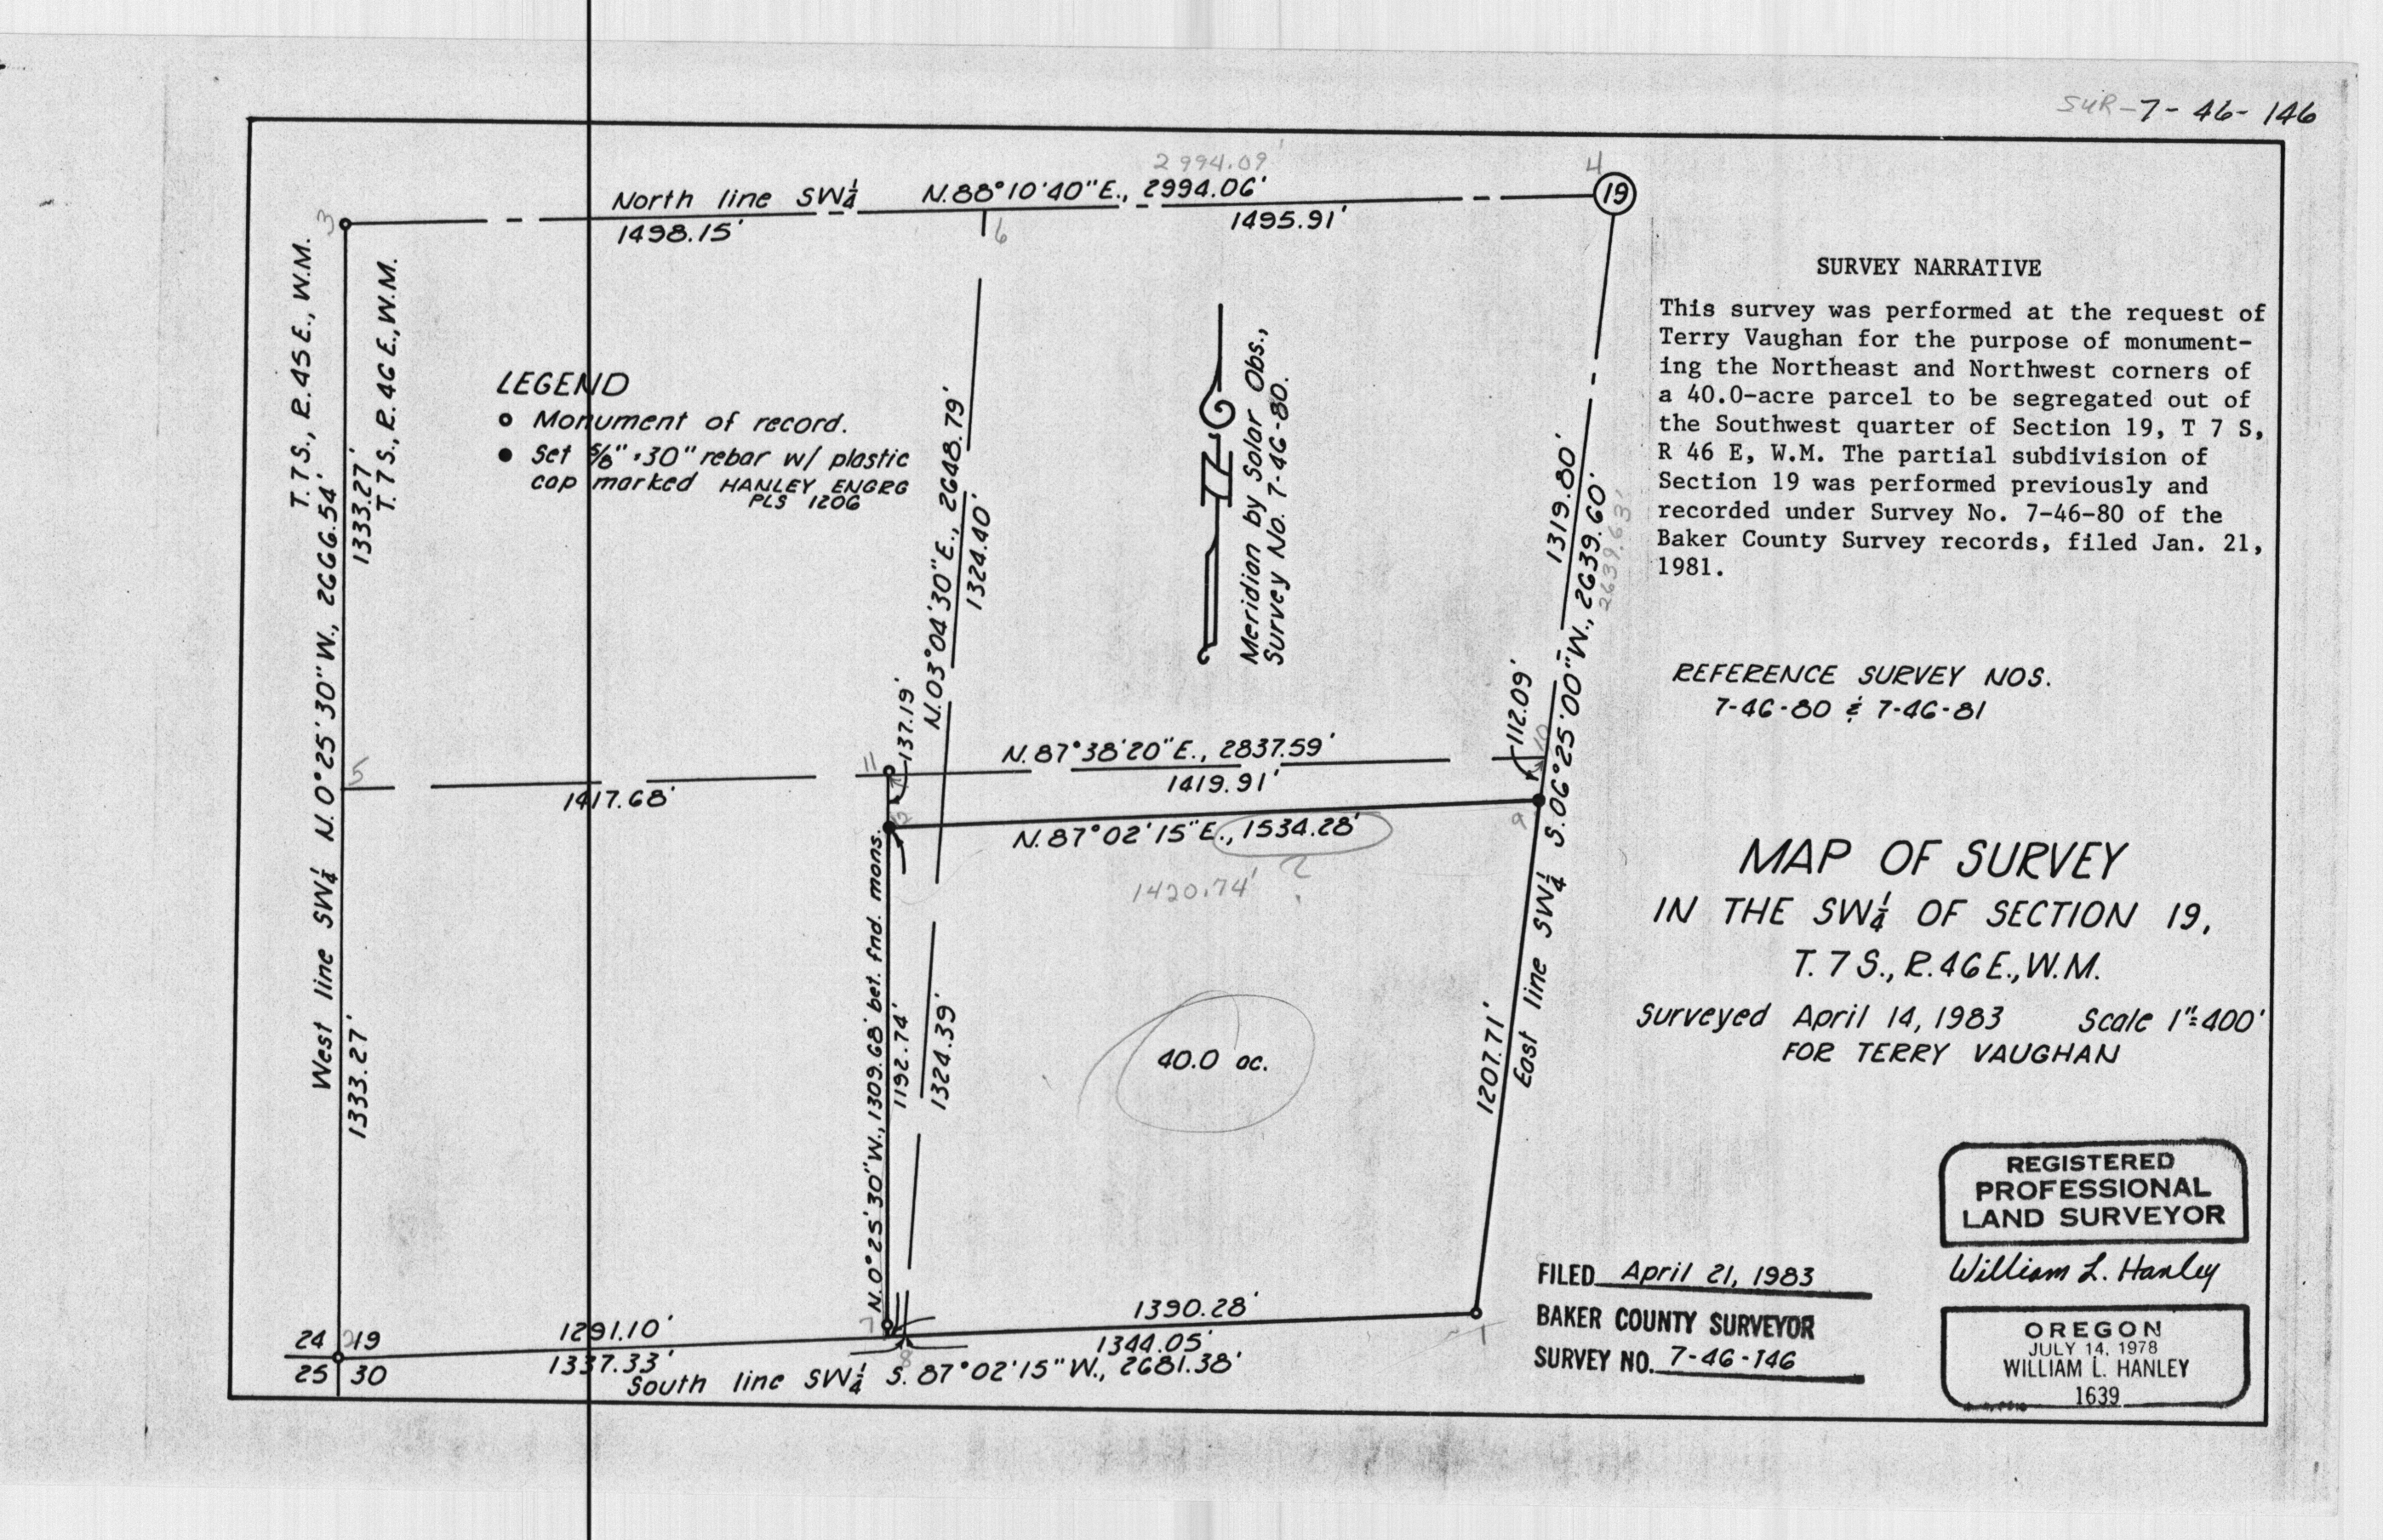 SUR-7-46-146
2994.09'
4
North line SW¼ N.88°10'40"E., 2994.06'
19
3
1498.15'
6
1495.91'
T.7S., R.45E., W.M.
T.7S., R.46E., W.M.
West line SW¼ N.0°25'30"W., 2666.54'
1333.27'
1333.27'
LEGEND
Monument of record.
Set 5/8" x 30" rebar w/ plastic
cap marked HANLEY ENGRG
PLS 1206
N.03°04'30"E., 2648.79'
1324.40'
137.19'
Meridian by Solar Obs.,
Survey No. 7-46-80.
1319.80'
2639.63'
East line SW¼ S.06°25'00"W., 2639.60'
112.09'
10
SURVEY NARRATIVE
This survey was performed at the request of
Terry Vaughan for the purpose of monument-
ing the Northeast and Northwest corners of
a 40.0-acre parcel to be segregated out of
the Southwest quarter of Section 19, T 7 S,
R 46 E, W.M. The partial subdivision of
Section 19 was performed previously and
recorded under Survey No. 7-46-80 of the
Baker County Survey records, filed Jan. 21,
1981.
REFERENCE SURVEY NOS.
7-46-80 & 7-46-81
5
11
N.87°38'20"E., 2837.59'
1417.68'
1419.91'
12
9
N.87°02'15"E., 1534.28'
1420.74' ?
N.0°25'30"W., 1309.68' bet. fnd. mons.
1192.74'
1324.39'
40.0 ac.
1207.71'
MAP OF SURVEY
IN THE SW¼ OF SECTION 19,
T.7S., R.46E., W.M.
Surveyed April 14, 1983 Scale 1"=400'
FOR TERRY VAUGHAN
REGISTERED
PROFESSIONAL
LAND SURVEYOR
William L. Hanley
OREGON
JULY 14, 1978
WILLIAM L. HANLEY
1639
FILED April 21, 1983
BAKER COUNTY SURVEYOR
SURVEY NO. 7-46-146
7
1
1291.10'
1390.28'
24 2 19
25 30
1337.33'
8
1344.05'
South line SW¼ S.87°02'15"W., 2681.38'